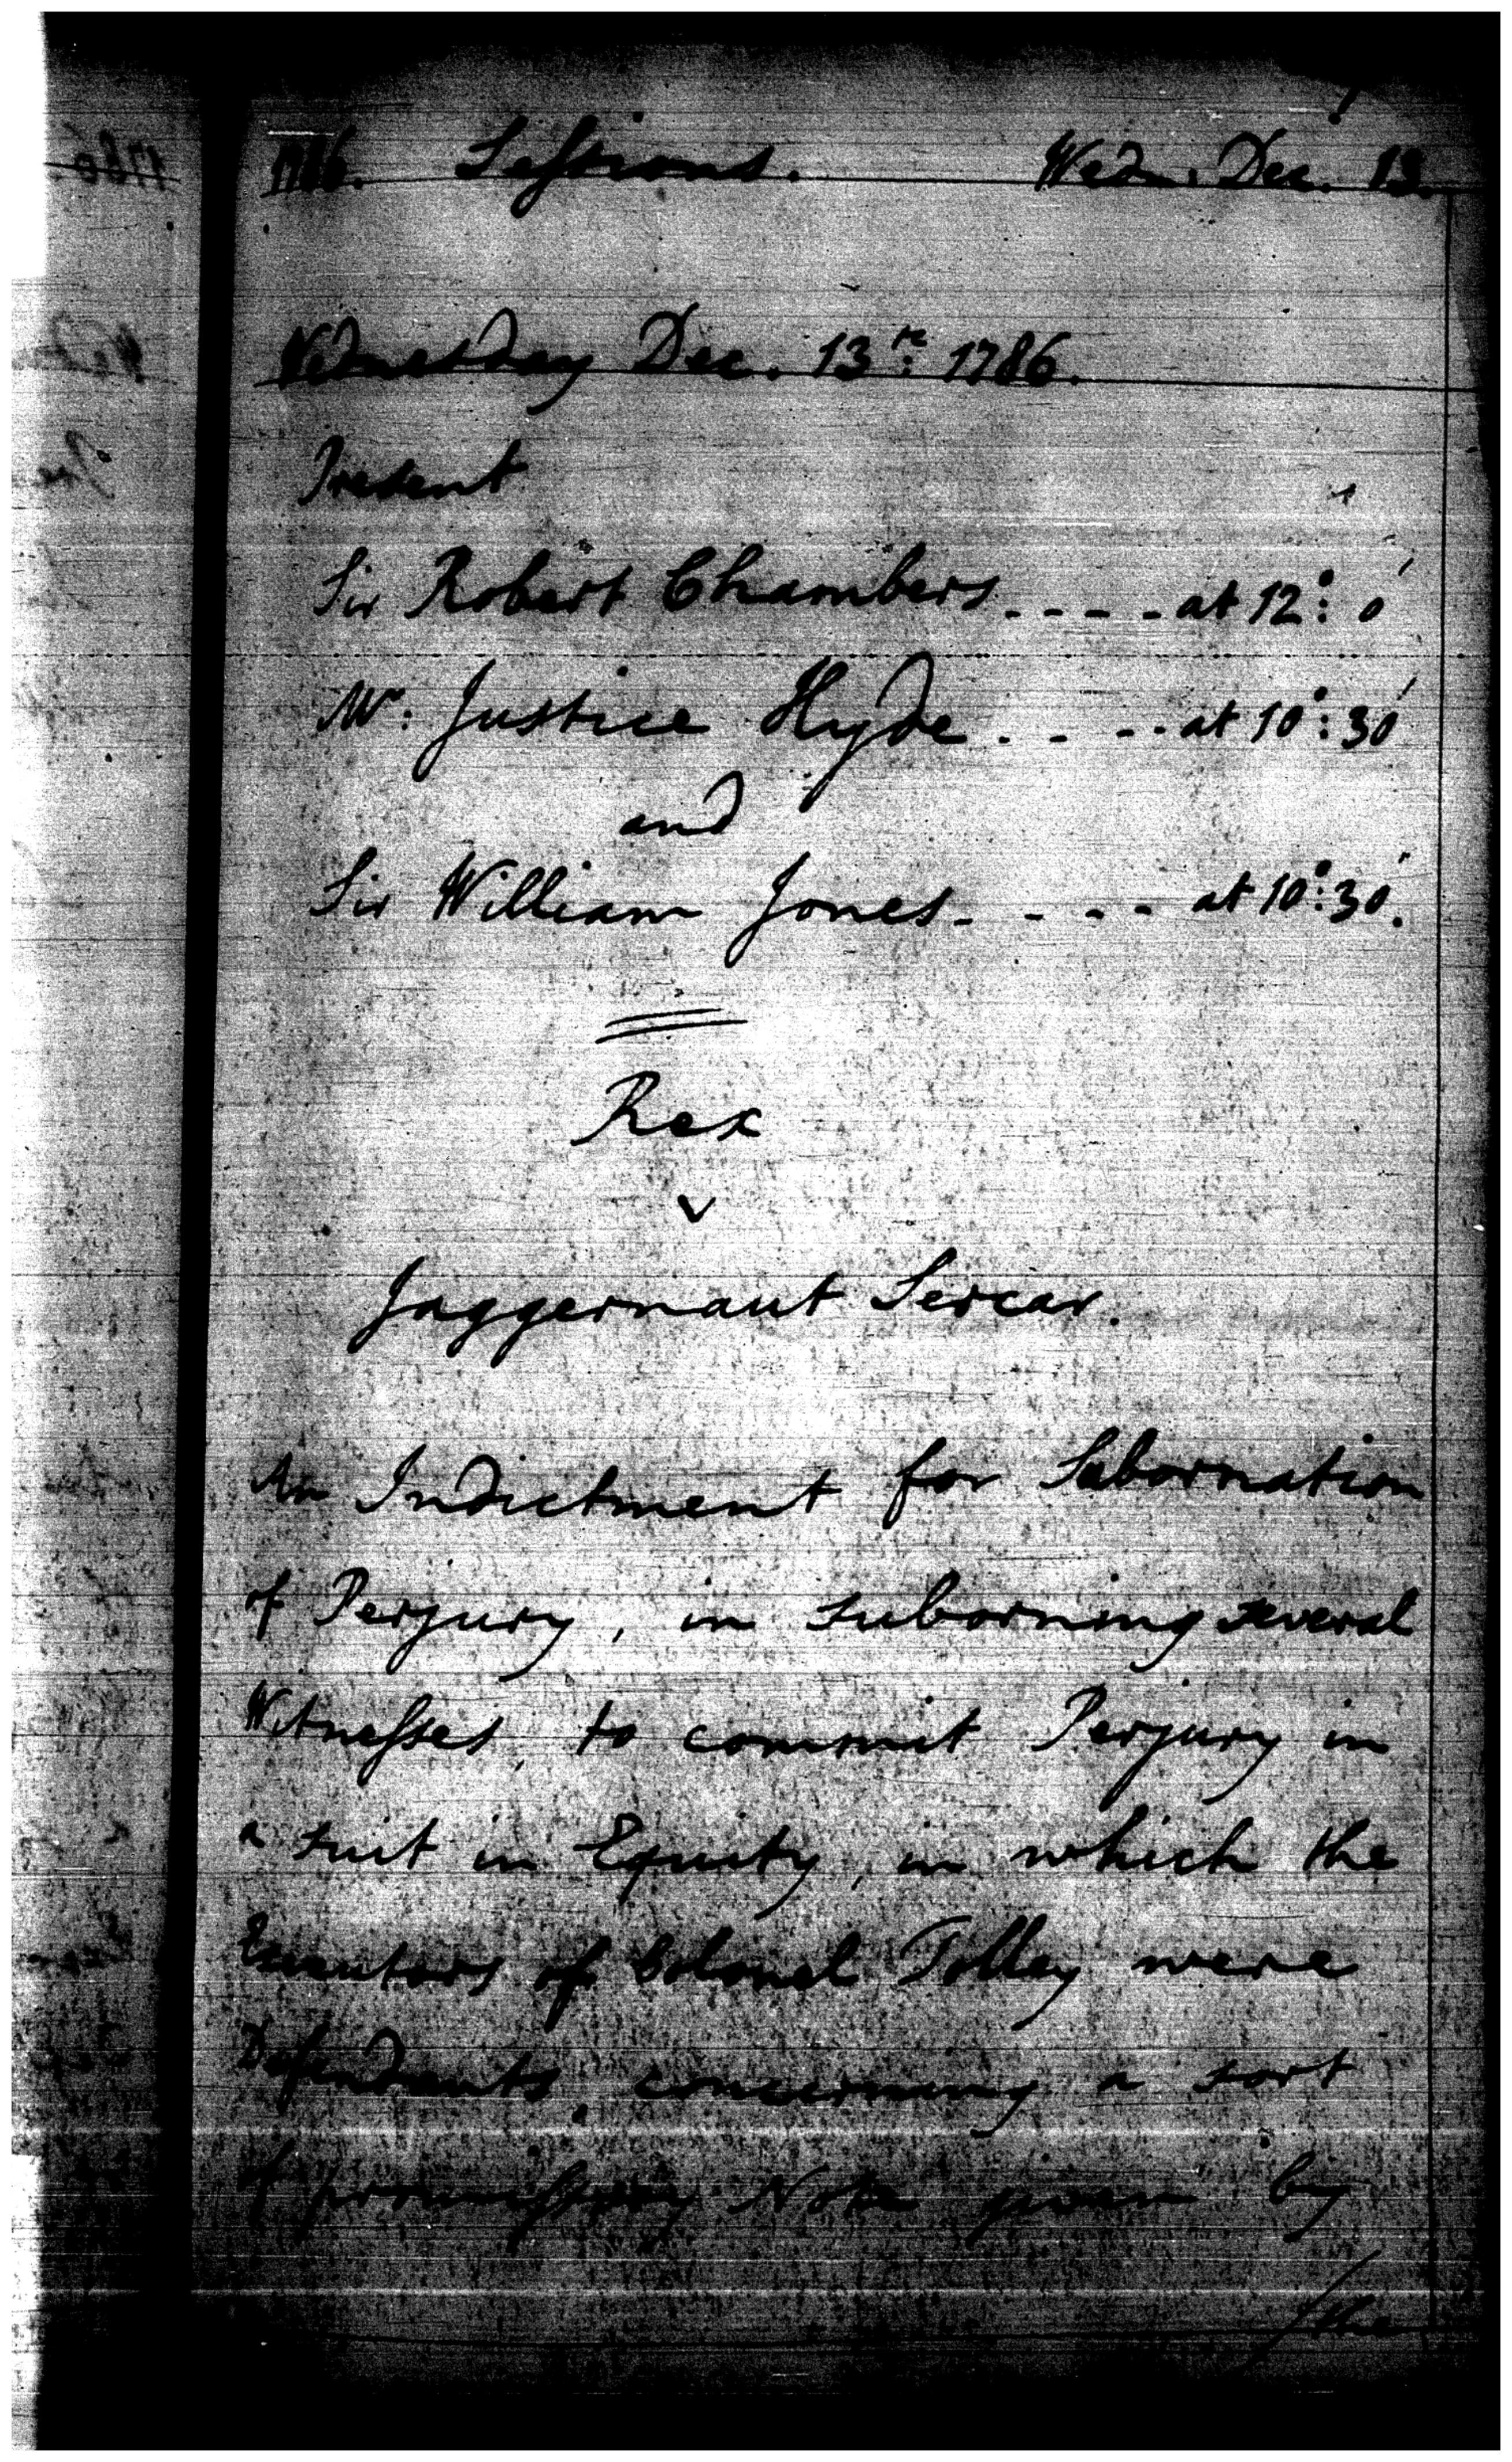 1786. Sessions. Wedn. Dec. 13.
Wednesday Dec. 13th. 1786.
Present
Sir Robert Chambers - - - - at 12°: 0'
Mr: Justice Hyde - - - - at 10°: 30'
and
Sir William Jones - - - - at 10°: 30'.
Rex
v
Jaggernaut Sercar.
An Indictment for Subornation
of Perjury, in suborning several
Witnesses, to commit Perjury in
a suit in Equity, in which the
Executors of Colonel Tolley were
Defendants, concerning a sort
of promissory Note given by
/the